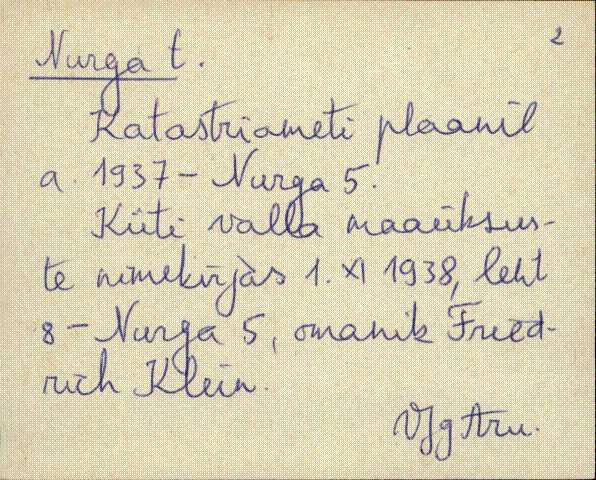 2
Nurga t.
Katastriameti plaanil
a. 1937 – Nurga 5.
Kiiti valla maaüksus-
te nimekirjas 1. XI 1938, leht
8 – Nurga 5, omanik Fried-
rich Klein.